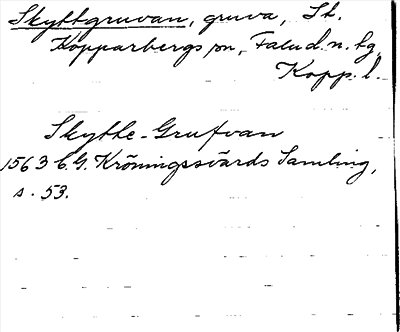 Skyttgruvan, gruva, St.
Kopparbergs sn, Falu d. n. tg,
Kopp. l.
Skytte-Grufvan
1563 C. G. Kröningssvärds Samling,
s. 53.